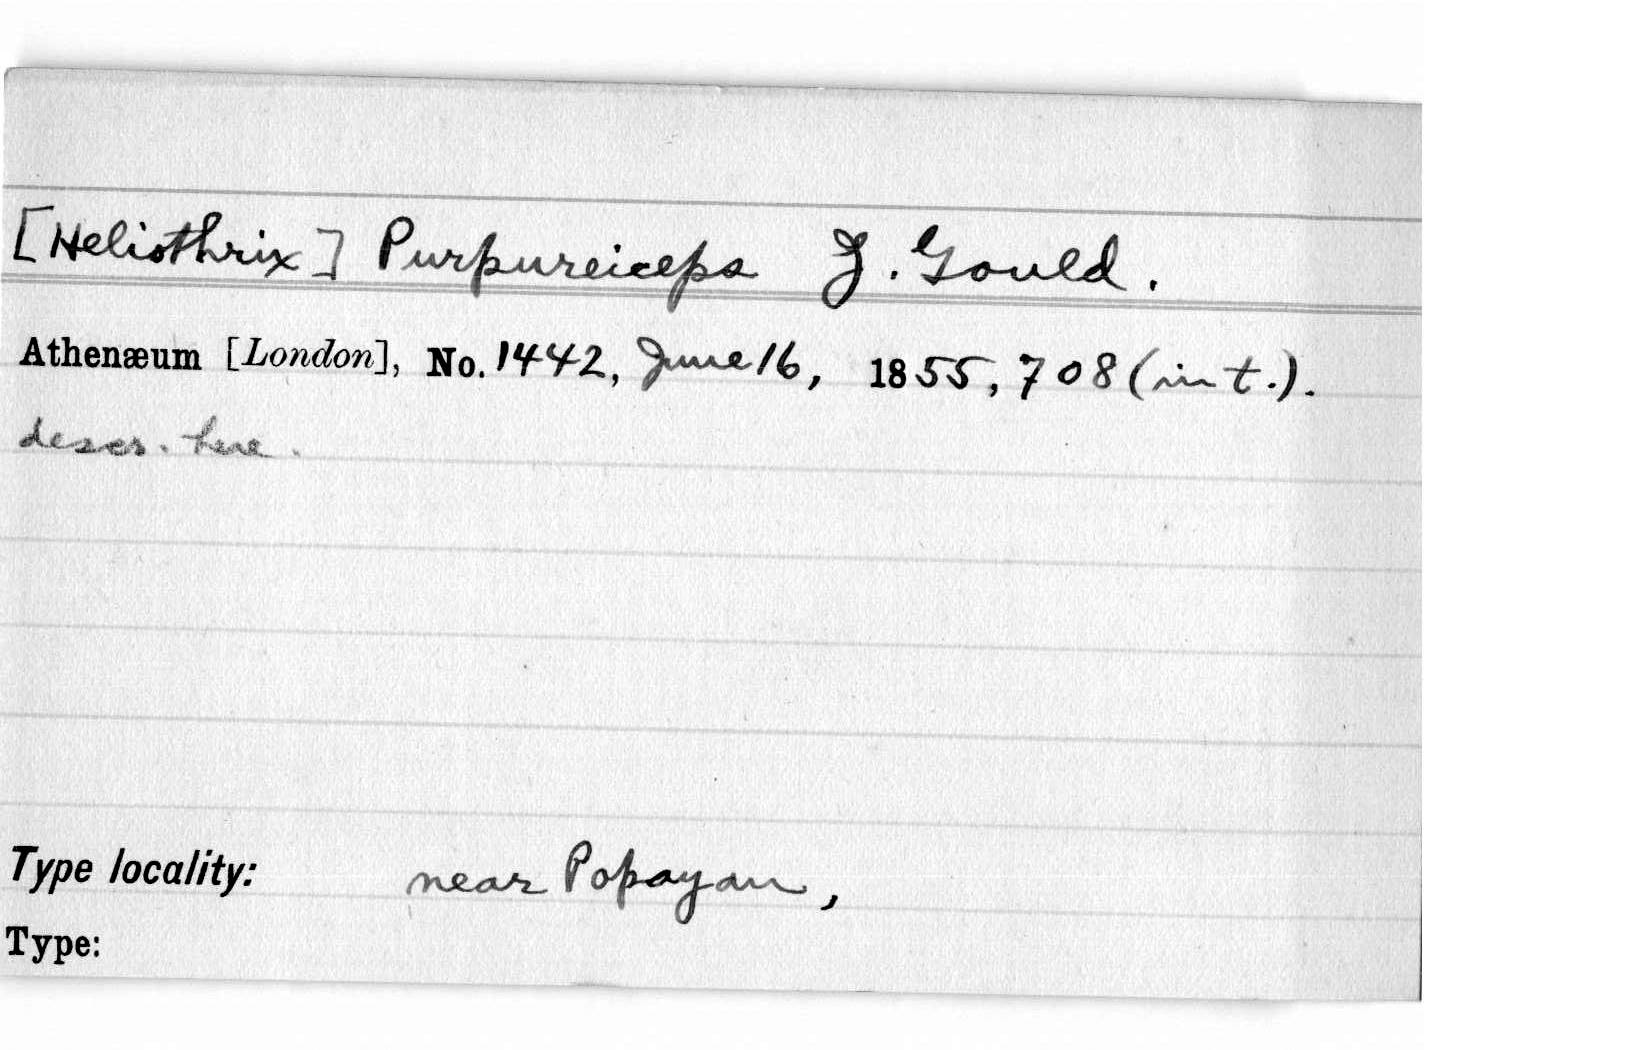 [Heliothrix] Purpureiceps J. Gould.
Athenæum [London], No. 1442, June 16, 1855, 708 (in t.).
descr. here.
Type locality: near Popayan,
Type: